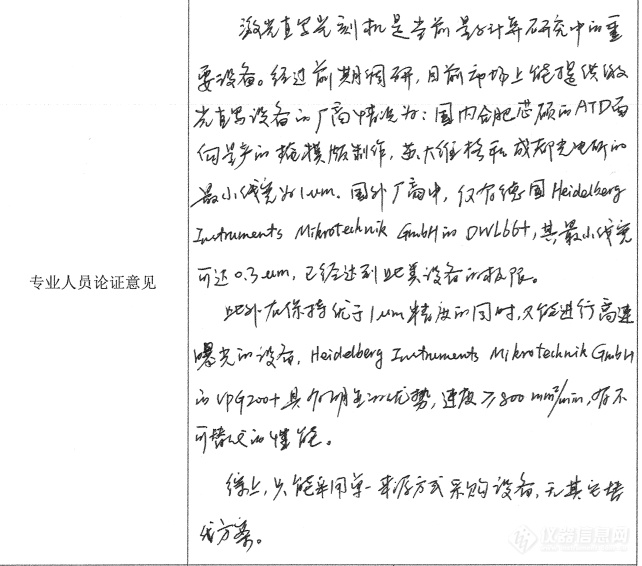 专业人员论证意见
激光直写光刻机是当前量子计算研究中的重
要设备。经过前期调研，目前市场上能提供激
光直写设备的厂商情况为：国内合肥芯硕的ATD面
向量产的掩模版制作，苏大维格和成都光电所的
最小线宽为1um. 国外厂商中，仅有德国Heidelberg
Instruments Mikrotechnik GmbH的DWL66+，其最小线宽
可达0.3um，已经达到此类设备的极限。
此外在保持优于1um精度的同时，又能进行高速
曝光的设备，Heidelberg Instruments Mikrotechnik GmbH
的VPG200+具有明显的优势，速度≥800mm²/min，有不
可替代的性能。
综上，只能采用单一来源方式采购设备，无其它替
代方案。
仪器信息网
www.instrument.com.cn